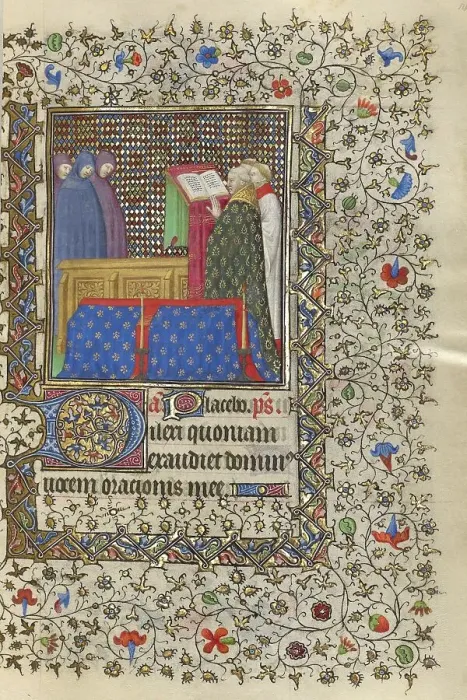 a͞ Placebo. p͞s
Dilexi quoniam
exaudiet domin⁹
uocem oracionis mee.